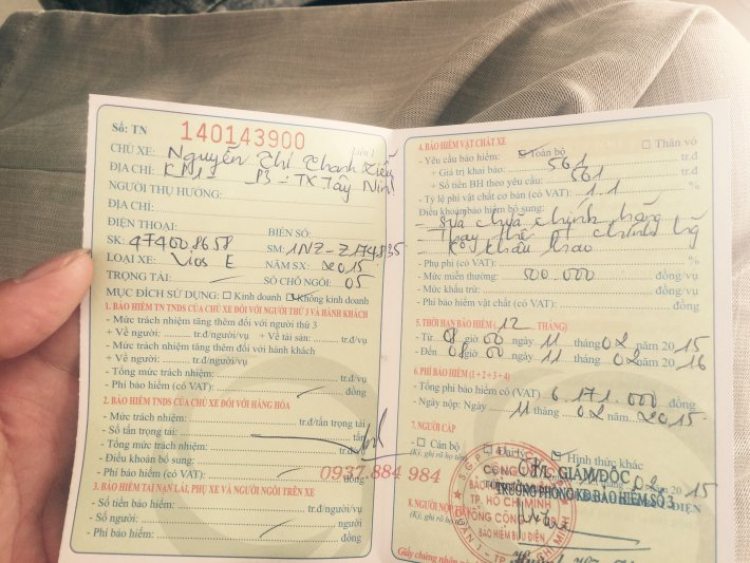 Số: TN 140143900
CHỦ XE: Nguyễn Thị Thanh
ĐỊA CHỈ: KP1 P3 - TX Tây Ninh
NGƯỜI THỤ HƯỞNG:
ĐỊA CHỈ:
ĐIỆN THOẠI: BIỂN SỐ:
SK: 474008658 SM: 1NZ-Z174835
LOẠI XE: Vios E NĂM SX: 2015
TRỌNG TẢI: SỐ CHỖ NGỒI: 05
MỤC ĐÍCH SỬ DỤNG: Kinh doanh Không kinh doanh
1. BẢO HIỂM TN TNDS CỦA CHỦ XE ĐỐI VỚI NGƯỜI THỨ 3 VÀ HÀNH KHÁCH
- Mức trách nhiệm tăng thêm đối với người thứ 3
+ Về người: tr.đ/người/vụ + Về tài sản: tr.đ/vụ
- Mức trách nhiệm tăng thêm đối với hành khách
+ Về người: tr.đ/người/vụ
- Tổng mức trách nhiệm: tr.đ/vụ
- Phí bảo hiểm (có VAT): đồng
2. BẢO HIỂM TNDS CỦA CHỦ XE ĐỐI VỚI HÀNG HÓA
- Mức trách nhiệm: tr.đ/tấn trọng tải
- Số tấn trọng tải: tấn
- Tổng mức trách nhiệm: tr.đ/vụ
- Điều khoản bổ sung:
- Phí bảo hiểm (có VAT): đồng
3. BẢO HIỂM TAI NẠN LÁI, PHỤ XE VÀ NGƯỜI NGỒI TRÊN XE
- Số tiền bảo hiểm: tr.đ/người/vụ
- Số người: người
- Phí bảo hiểm: đồng
0937.884 984
4. BẢO HIỂM VẬT CHẤT XE
- Yêu cầu bảo hiểm: Toàn bộ Thân vỏ
+ Giá trị khai báo: 561 tr.đ
+ Số tiền BH theo yêu cầu: 561 tr.đ
- Tỷ lệ phí vật chất cơ bản (có VAT): 1.1 %
Điều khoản bảo hiểm bổ sung:
- Sửa chữa chính hãng
- Thay thế chính hg
- Ko khấu hao
- Phụ phí (có VAT): %
- Mức miễn thường: 500.000 đồng/vụ
- Mức khấu trừ: đồng/vụ
- Phí bảo hiểm vật chất (có VAT): đồng
5. THỜI HẠN BẢO HIỂM (12 THÁNG)
- Từ 08 giờ 00 ngày 11 tháng 02 năm 2015
- Đến 08 giờ 00 ngày 11 tháng 02 năm 2016
6. PHÍ BẢO HIỂM (1+2+3+4)
- Tổng phí bảo hiểm có (VAT) 6.171.000 đồng
- Ngày nộp: Ngày 11 tháng 02 năm 2015
7. NGƯỜI CẤP
- Cán bộ Đại lý Hình thức khác
TL. GIÁM ĐỐC 02 2015
TRƯỞNG PHÒNG KD BẢO HIỂM SỐ 3
CÔNG
BẢO HIỂM
TP. HỒ CHÍ MINH
TỔNG CÔNG
BẢO HIỂM BƯU ĐIỆN
8. NGƯỜI NỘP
Giấy chứng nhận